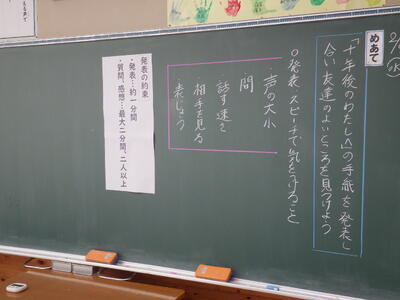 2/
(水)
めあて
「十年後のわたしへ」の手紙を発表し
合い友達のよいところを見つけよう
○発表、スピーチで気をつけること
・声の大小
・間
・話す速さ
・相手を見る
・表じょう
発表の約束
・発表…約一分間
・質問、感想…最大二分間、二人以上